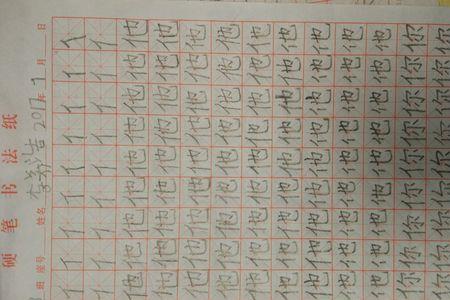 硬笔书法纸
班 座号 姓名 李 洁 2017年7月 日
亻亻亻亻亻亻亻亻亻
亻亻亻亻亻亻亻亻亻
他他他他他他他他他
他他他他他他他他他
他他他他他他他他他
他他他他他他他他他
他他他他他他他他他
他他他他他他他他他
他他他他他他他他他
他他他他他他他他他
他他他他他他他他他
你你你你你你你你你
你你你你你你你你你